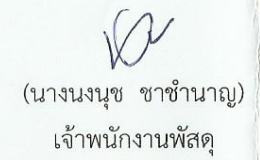 (นางนงนุช ชาชำนาญ)
เจ้าพนักงานพัสดุ